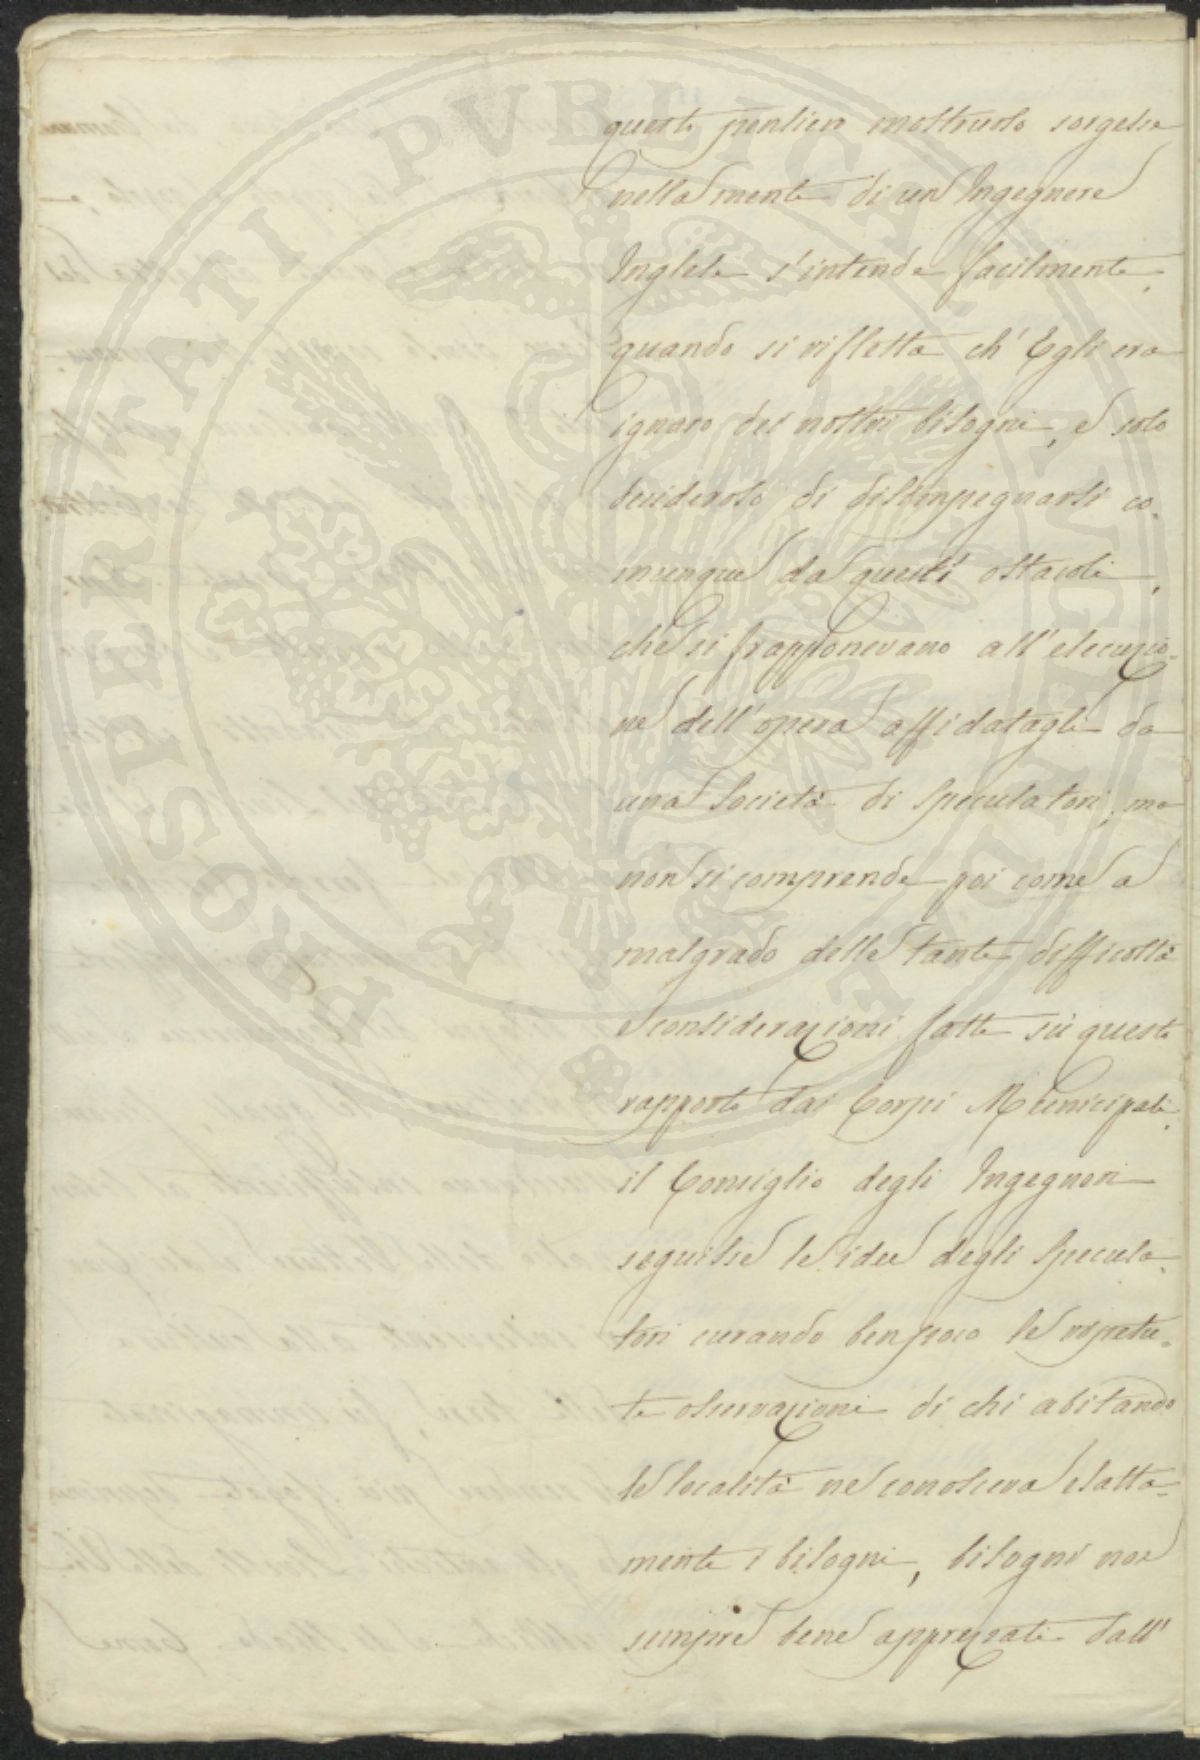 PROSPERITATI PUBLICAE AUGENDAE
questo pensiero mostruoso sorgesse
nella mente di un Ingegnere
Inglese s'intende facilmente,
quando si rifletta ch' Egli era
ignaro dei nostri bisogni, e solo
desideroso di disimpegnarsi co-
munque da questi ostacoli,
che si frapponevano all' esecuzio-
ne dell' opera affidatagli da
una Società di Speculatori, ma
non si comprende poi come a
malgrado delle tante difficoltà
e considerazioni fatte sù questo
rapporto dai Corpi Municipali,
il Consiglio degli Ingegneri
seguisse le idee degli Specula-
tori curando ben poco le ripetu-
te osservazioni di chi abitando
le località ne conosceva esatta-
mente i bisogni, bisogni non
sempre bene apprezzati dall'